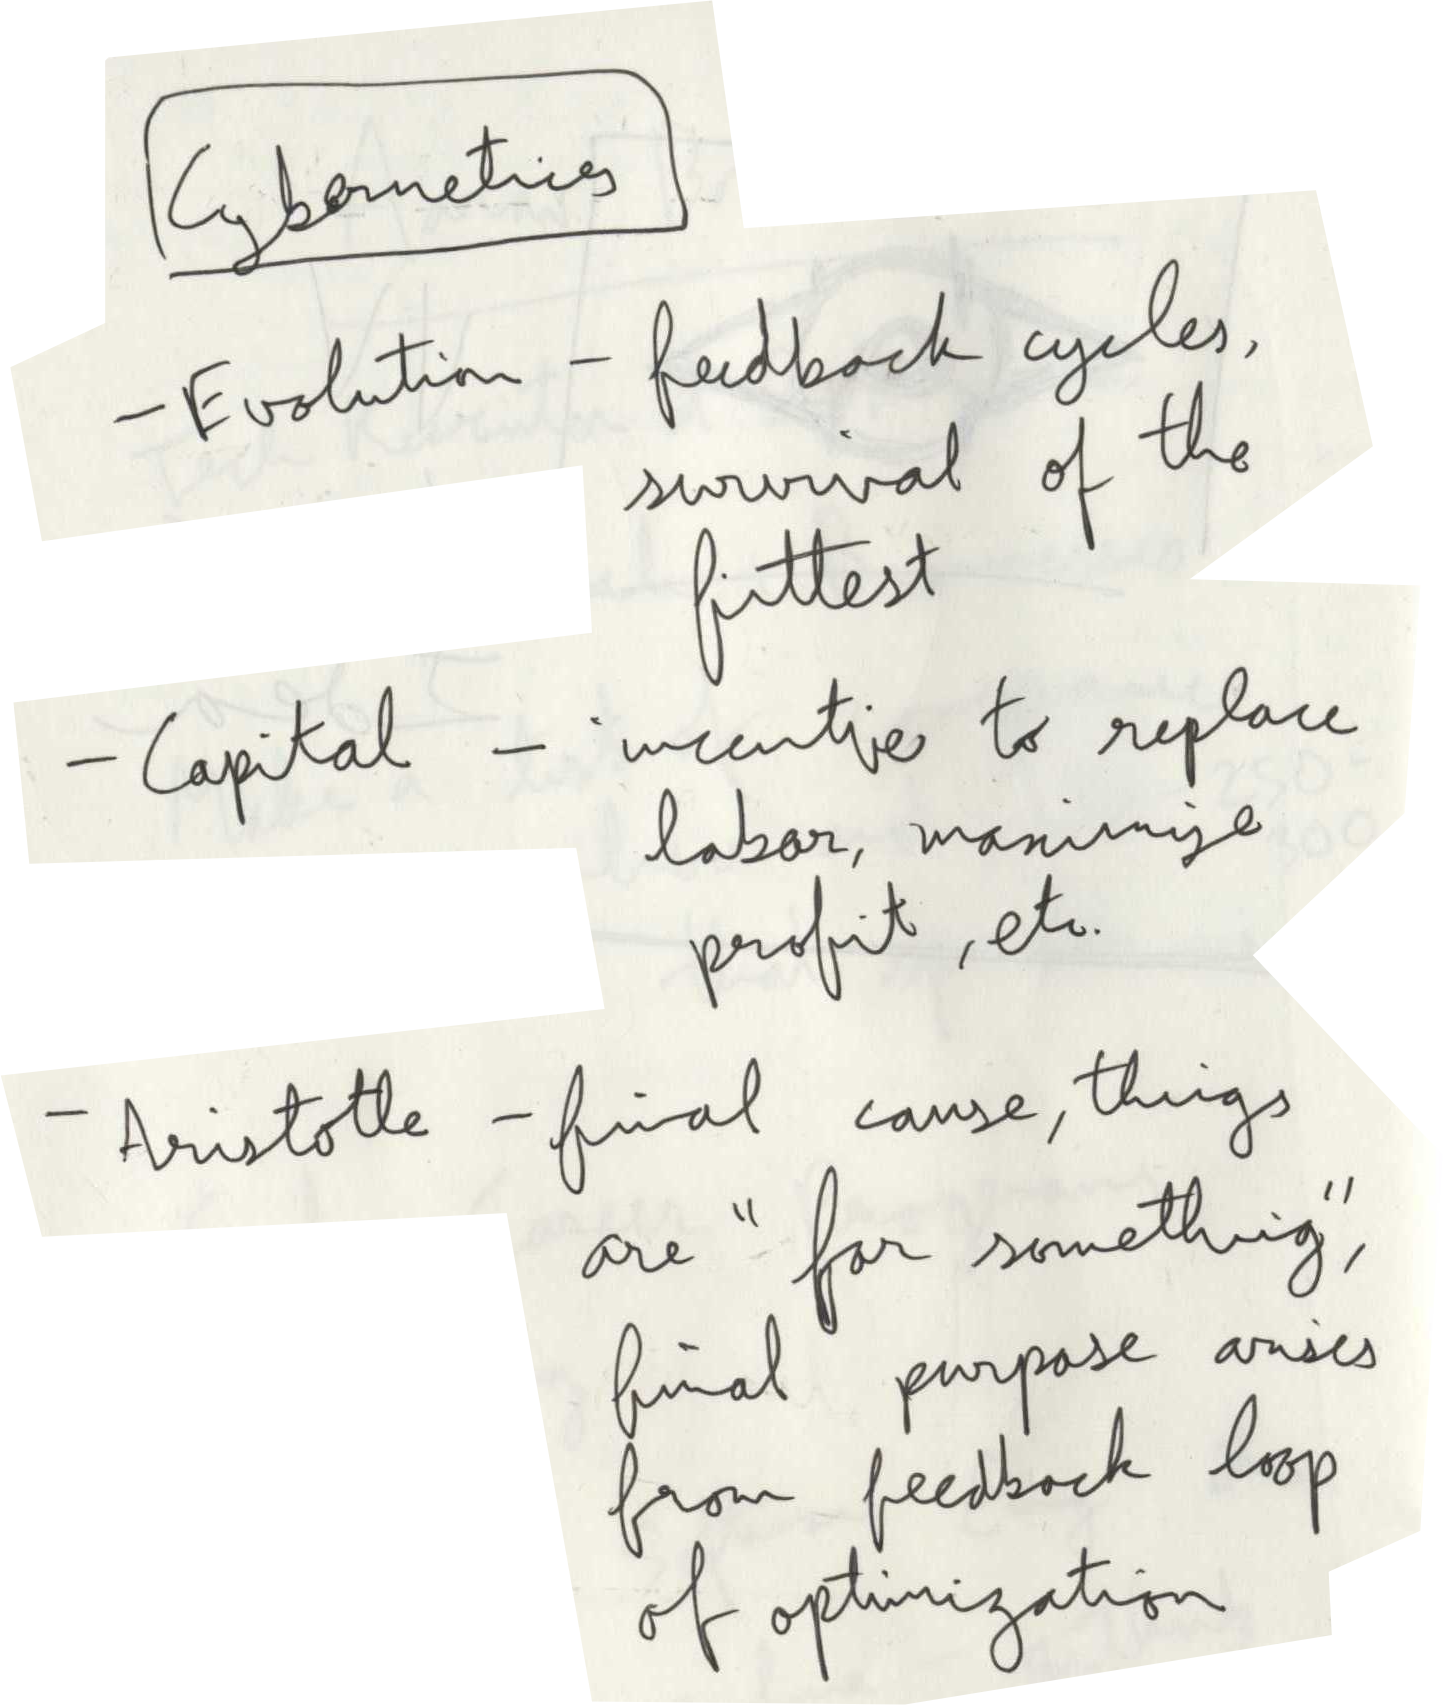 Cybernetics
- Evolution - feedback cycles,
survival of the
fittest
- Capital - incentive to replace
labor, maximize
profit, etc.
- Aristotle - final cause, things
are "for something",
final purpose arises
from feedback loop
of optimization